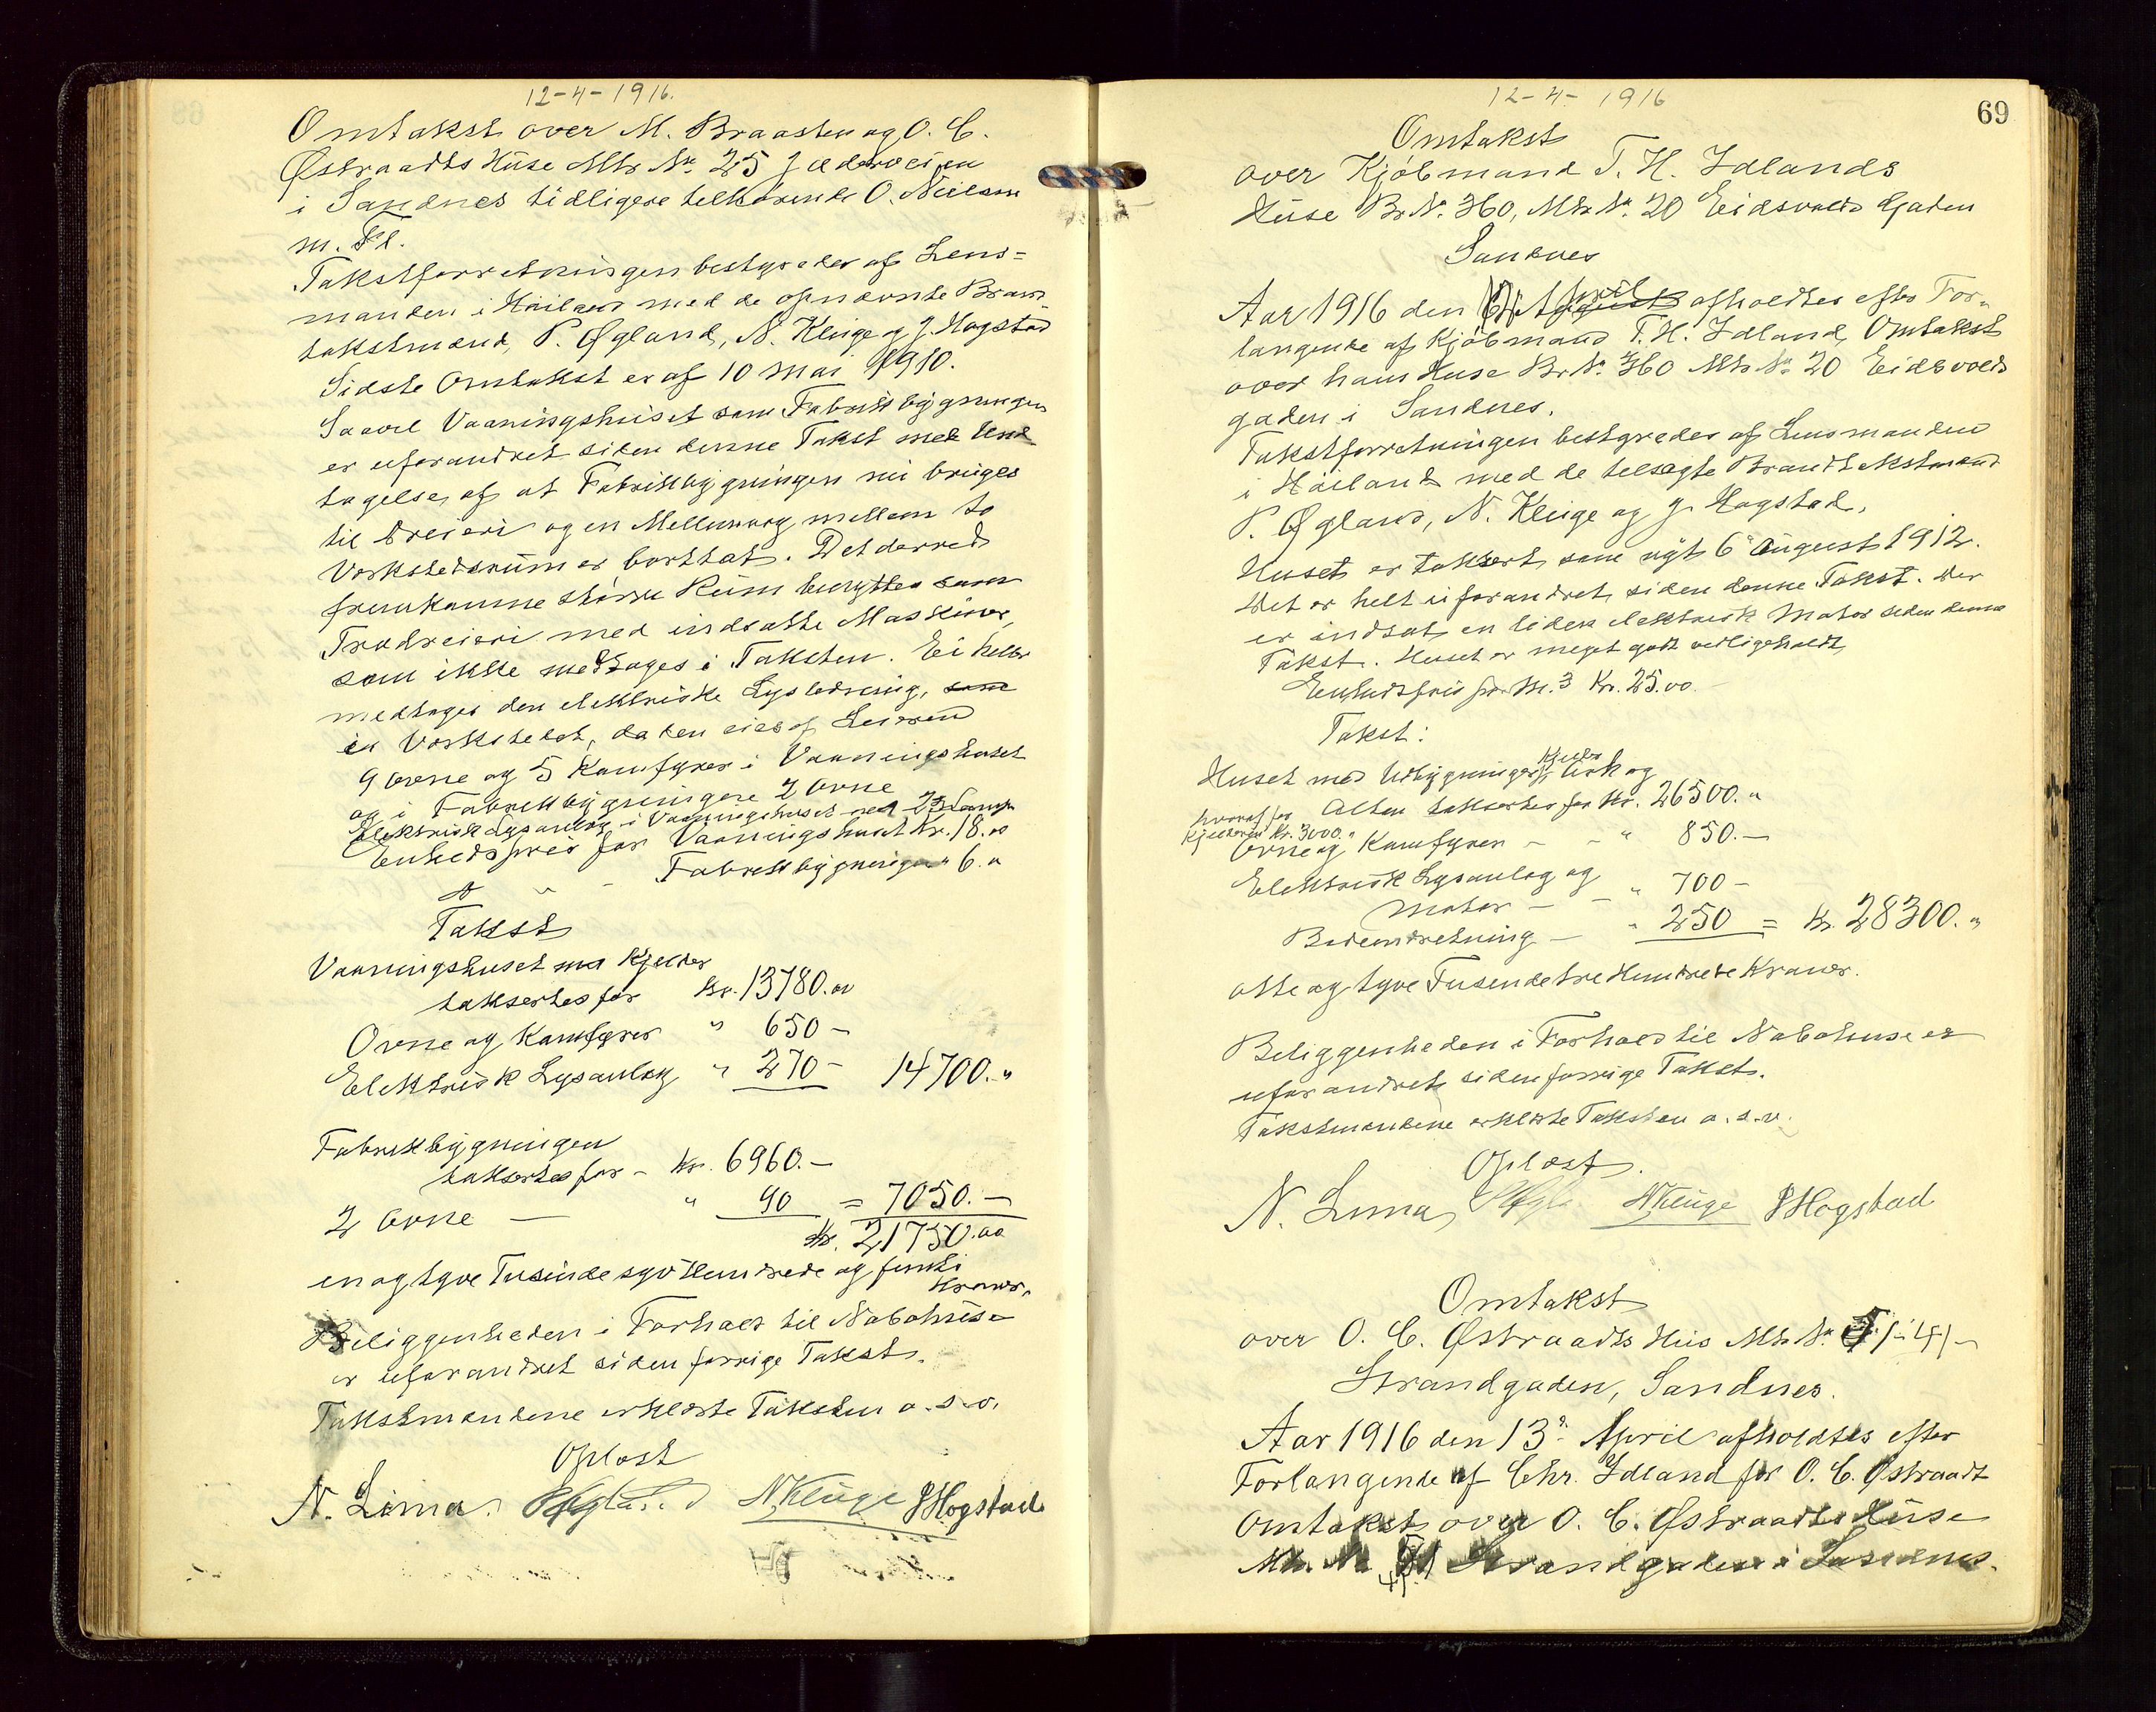 12-4-1916.
Omtakst over M. Braasten og O. C.
Østraadts Huse Mtr. Nr. 25 Jæderveien
i Sandnes tidligere tilhørende O. Nielsen
m. Fl.
Takstforretningen bestyredes af Lens-
manden i Høiland med de opnævnte Brand-
takstmænd, P. Øgland, N. Kluge og J. Hogstad
Sidste Omtakst er af 10 Mai 1910.
Saavel Vaaningshuset som Fabrikbygningen
er uforandret siden denne Takst med Und-
tagelse af at Fabrikbygningen nu bruges
til Dreieri og en Mellemvæg mellem to
Verkstedsrum er borttat. Det derved
fremkomne større Rum benyttes som
Trædreieri med indsatte Maskiner,
som ikke medtages i Taksten. Ei heller
medtages den elektriske Lysledning, som
in Verkstedet, da den eies af Leieren
9 Ovne og 5 Komfyrer i Vaaningshuset
og i Fabrikbygningen 2 Ovne
Elektrisk Lysanlæg i Vaaningshuset med 23 Lamper
Enhedspris for Vaaningshuset Kr. 18.00
" - Fabrikbygningen " 6. "
Takst
Vaaningshuset med Kjelder
takseres for Kr. 13780.00
Ovne og Komfyrer " 650 -
Elektrisk Lysanlæg " 270 - 14700. "
Fabrikbygningen
takseres for - Kr. 6960. -
2 Ovne - " 90 = 7050. -
Kr. 21750.00
en og tyve Tusinde syv Hundrede og femti
Kroner.
Beliggenheden i Forhold til Nabohuse
er uforandret siden forrige Takst.
Takstmændene erklærte Taksten o. s. v.
Oplæst
N. Lima. P Øgland N Kluge J Hogstad
12-4-1916
69
Omtakst
over Kjøbmand T. H. Idlands
Huse Br. Nr. 360, Mtr. Nr. 20 Eidsvolds Gaden
Sandnes
Aar 1916 den 12 April August afholdtes efter For-
langende af Kjøbmand T. H. Idland, Omtakst
over hans Huse Br. Nr. 360 Mtr. Nr. 20 Eidsvolds
gaden i Sandnes.
Takstforretningen bestyredes af Lensmanden
i Høiland med de tilsagte Brandtakstmænd
P. Øgland, N. Kluge og J. Hogstad.
Huset er taksert som nyt 6 August 1912.
Det er helt uforandret siden denne Takst. Der
er indsat en liden elektrisk Motor siden denne
Takst. Huset er meget godt vedligeholdt.
Enhedspris pr. M.3 Kr. 25.00.-
Takst:
Huset med Utbygninger, Kjelder, Ark og
Altan takseres for Kr. 26500. "
hvoraf for
Kjelderen Kr. 3000. "
Ovne og Komfyrer - - " 850. -
Elektrisk Lysanlæg og
Motor - - " 700 -
Badeindretning - " 250 = Kr. 28300. "
otte og tyve Tusinde tre Hundrede Kroner.
Beliggenheden i Forhold til Nabohuse er
uforandret siden forrige Takst.
Takstmændene erklærte Taksten o. s. v.
Oplæst.
N. Lima, P Øgla N Kluge J Hogstad
Omtakst
over O. C. Østraadts Hus Mtr. Nr.
Strandgaden, Sandnes.
Aar 1916 den 13. April afholdtes efter
Forlangende af Chr. Idland for O. C. Østraadt
Omtakst over O. C. Østraadts Huse
Mtr. Nr. Strandgaden i Sandnes.